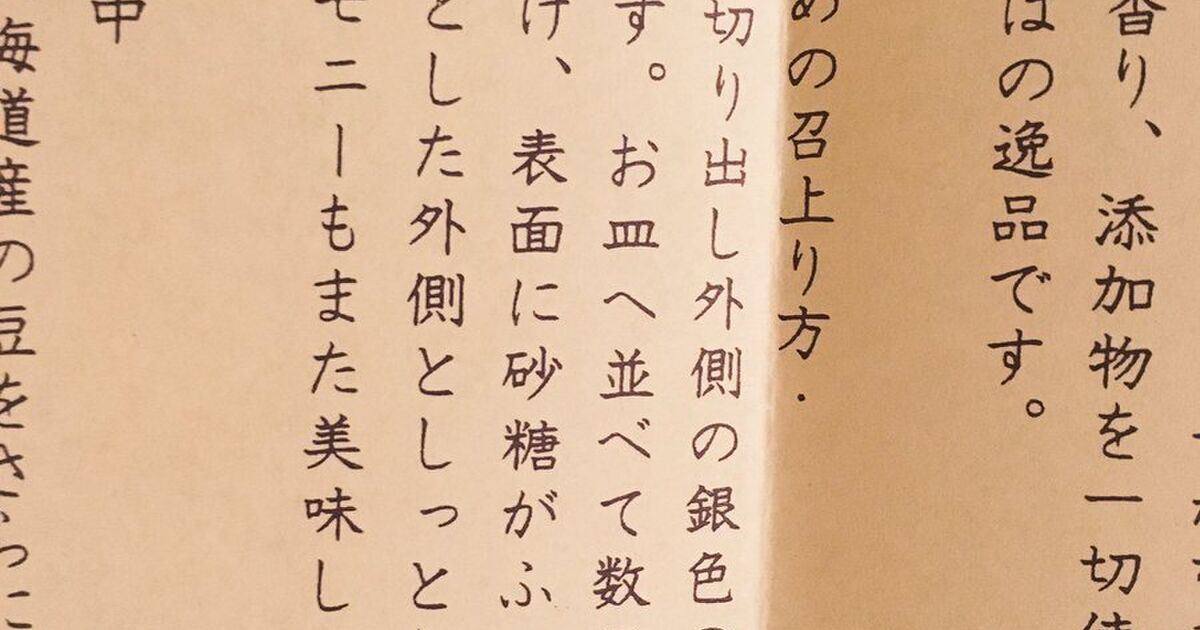 香り、添加物を一切使
はの逸品です。
めの召上り方・
切り出し外側の銀色の
す。お皿へ並べて数
け、表面に砂糖がふ
とした外側としっと
モニーもまた美味し
中
海道産の豆をさっに